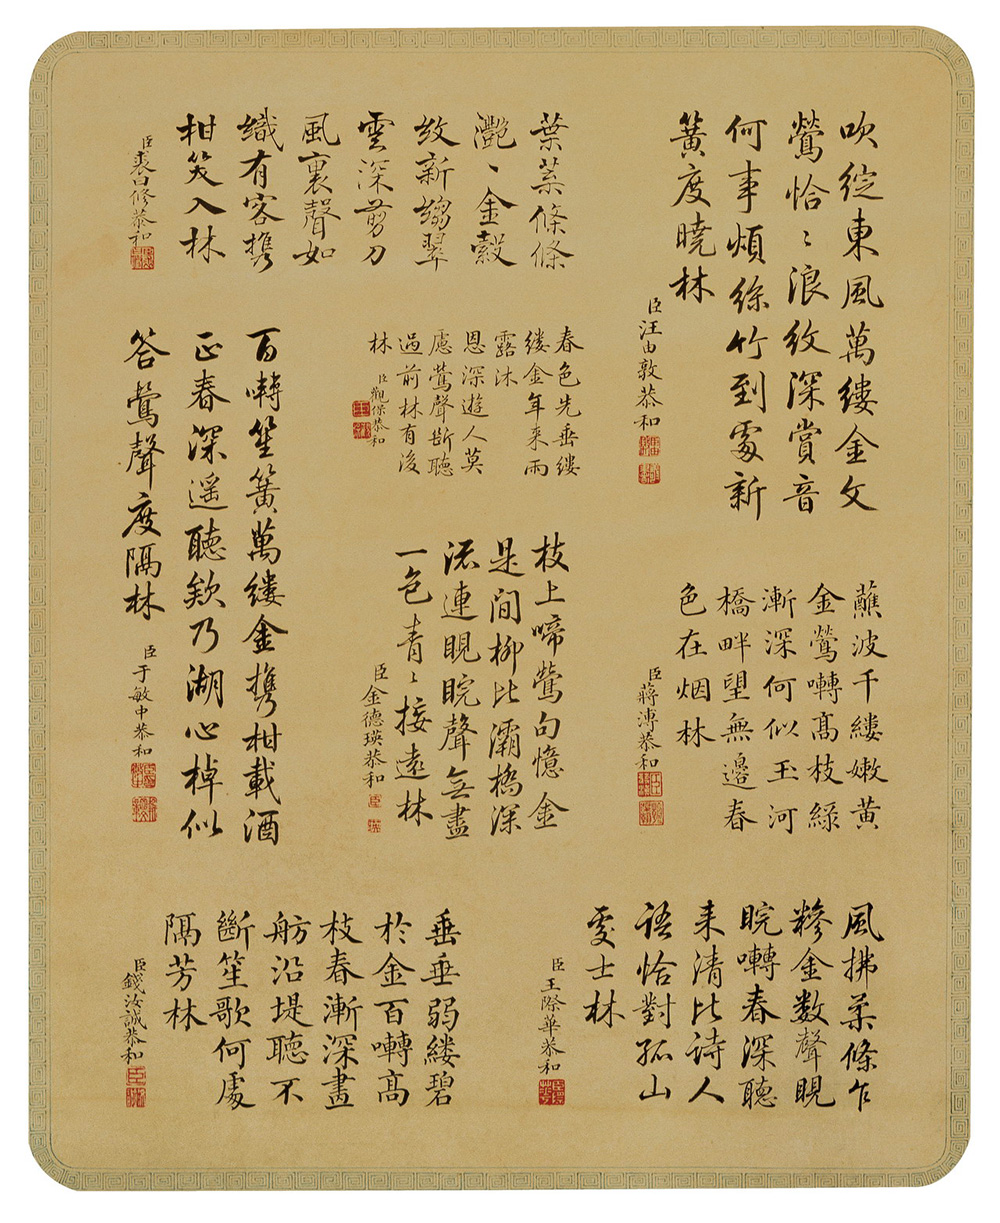 吹綻東風萬縷金文
鶯恰〻浪紋深賞音
何事煩絲竹到處新
簧度曉林
臣汪由敦恭和
葉葉條條
灔〻金縠
紋新縐翠
雲深剪刀
風裏聲如
織有客攜
柑笑入林
臣裘曰修恭和
春色先垂縷
縷金年來雨
露沐
恩深遊人莫
慮鶯聲斷聽
過前林有後
林
臣觀保恭和
百囀笙簧萬縷金攜柑載酒
正春深遥聽欸乃湖心棹似
答鶯聲度隔林
臣于敏中恭和
蘸波千縷嫩黃
金鶯囀高枝綠
漸深何似玉河
橋畔望無邊春
色在烟林
臣蔣溥恭和
枝上啼鶯句憶金
是間柳比灞橋深
濃連睍睆聲無盡
一色青〻接遠林
臣金德瑛恭和
風拂柔條乍
糝金数聲睍
睆囀春深聽
来清比诗人
語恰對孤山
處士林
臣王際華恭和
垂垂弱縷碧
於金百囀高
枝春漸深畫
舫沿堤聽不
斷笙歌何處
隔芳林
臣錢汝誠恭和